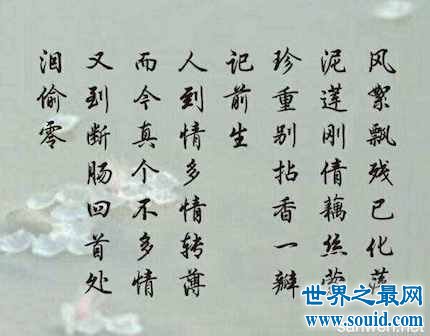 风絮飘残已化萍
泥莲刚倩藕丝萦
珍重别拈香一瓣
记前生
人到情多情转薄
而今真个不多情
又到断肠回首处
泪偷零
世界之最网
www.souid.com